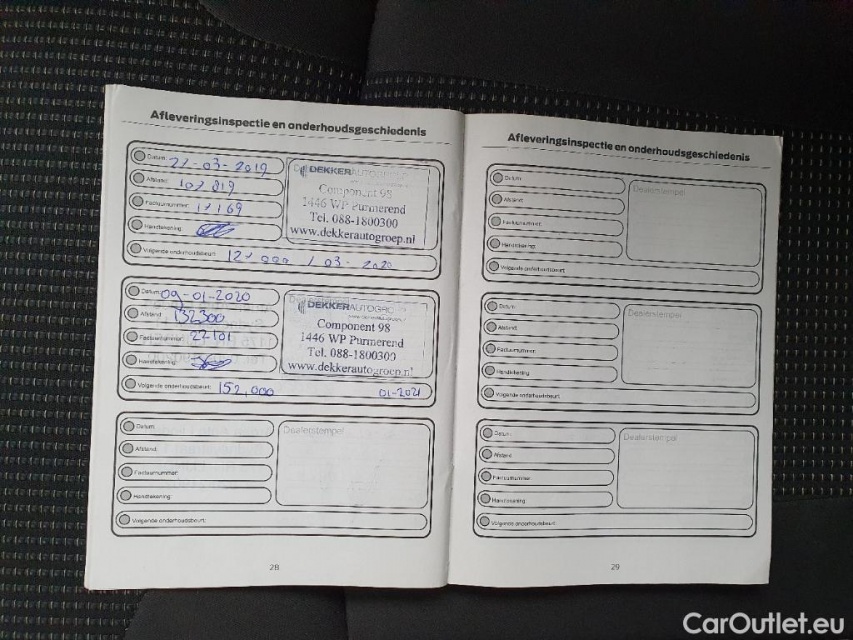 Afleveringsinspectie en onderhoudsgeschiedenis
Datum:
Afstand:
Factuurnummer:
Handtekening:
Volgende onderhoudsbeurt: / 03-2020
DEKKERAUTOGRO
Component 98
1446 WP Purmerend
Tel. 088-1800300
www.dekkerautogroep.nl
Datum: 09-01-2020
Afstand: 132300
Factuurnummer: 22101
Handtekening:
Volgende onderhoudsbeurt: 152,000 01-2021
DEKKERAUTOGRO
Component 98
1446 WP Purmerend
Tel. 088-1800300
www.dekkerautogroep.nl
Datum:
Afstand:
Factuurnummer:
Handtekening:
Volgende onderhoudsbeurt:
Dealerstempel
28
Afleveringsinspectie en onderhoudsgeschiedenis
Datum:
Afstand:
Factuurnummer:
Handtekening:
Volgende onderhoudsbeurt:
Dealerstempel
Datum:
Afstand:
Factuurnummer:
Handtekening:
Volgende onderhoudsbeurt:
Dealerstempel
Datum:
Afstand:
Factuurnummer:
Handtekening:
Volgende onderhoudsbeurt:
Dealerstempel
29
CarOutlet.eu